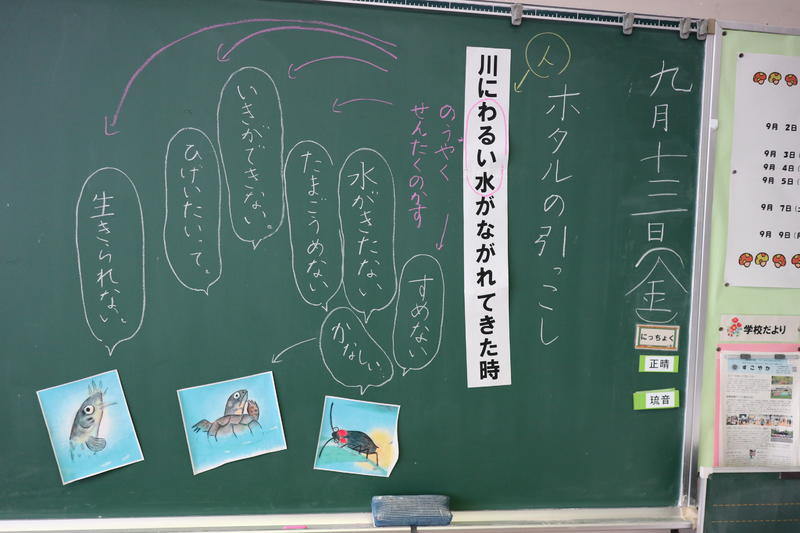 九月十三日(金)
にっちょく
正晴
琉音
人
ホタルの引っこし
川にわるい水がながれてきた時
のうやく
せんたくのかす
すめない
かなしい、
水がきたない
たまごうめない
いきができない。
ひげいたいって。
生きられない。
9月 2日
9月 3日(
9月 4日(
9月 5日(
9月 7日(
9月 9日(
学校だより
すこやか